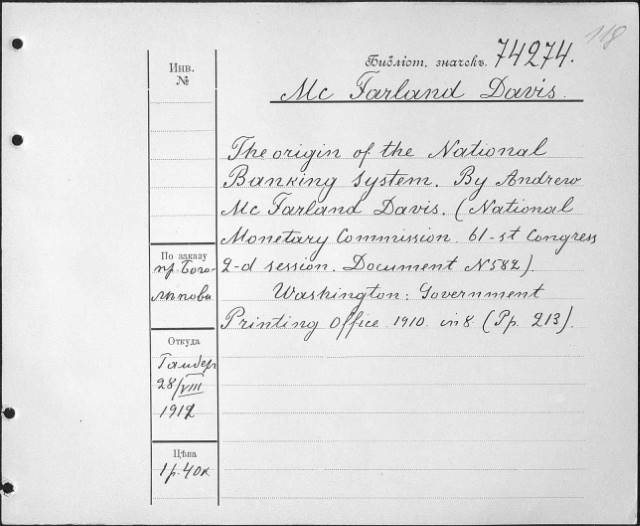 118
Библіот. значокъ. 74274.
Mc Farland Davis.
Инв.
№
The origin of the National
Banking System. By Andrew
Mc Farland Davis. (National
Monetary Commission. 61-st Congress
2-d session. Document N 582).
Washington: Government
Printing Office. 1910. in 8. (Pp. 213).
По заказу
пр. Бого-
лѣпова
Откуда
28/VIII
1912
Цѣна
1 р. 40 к